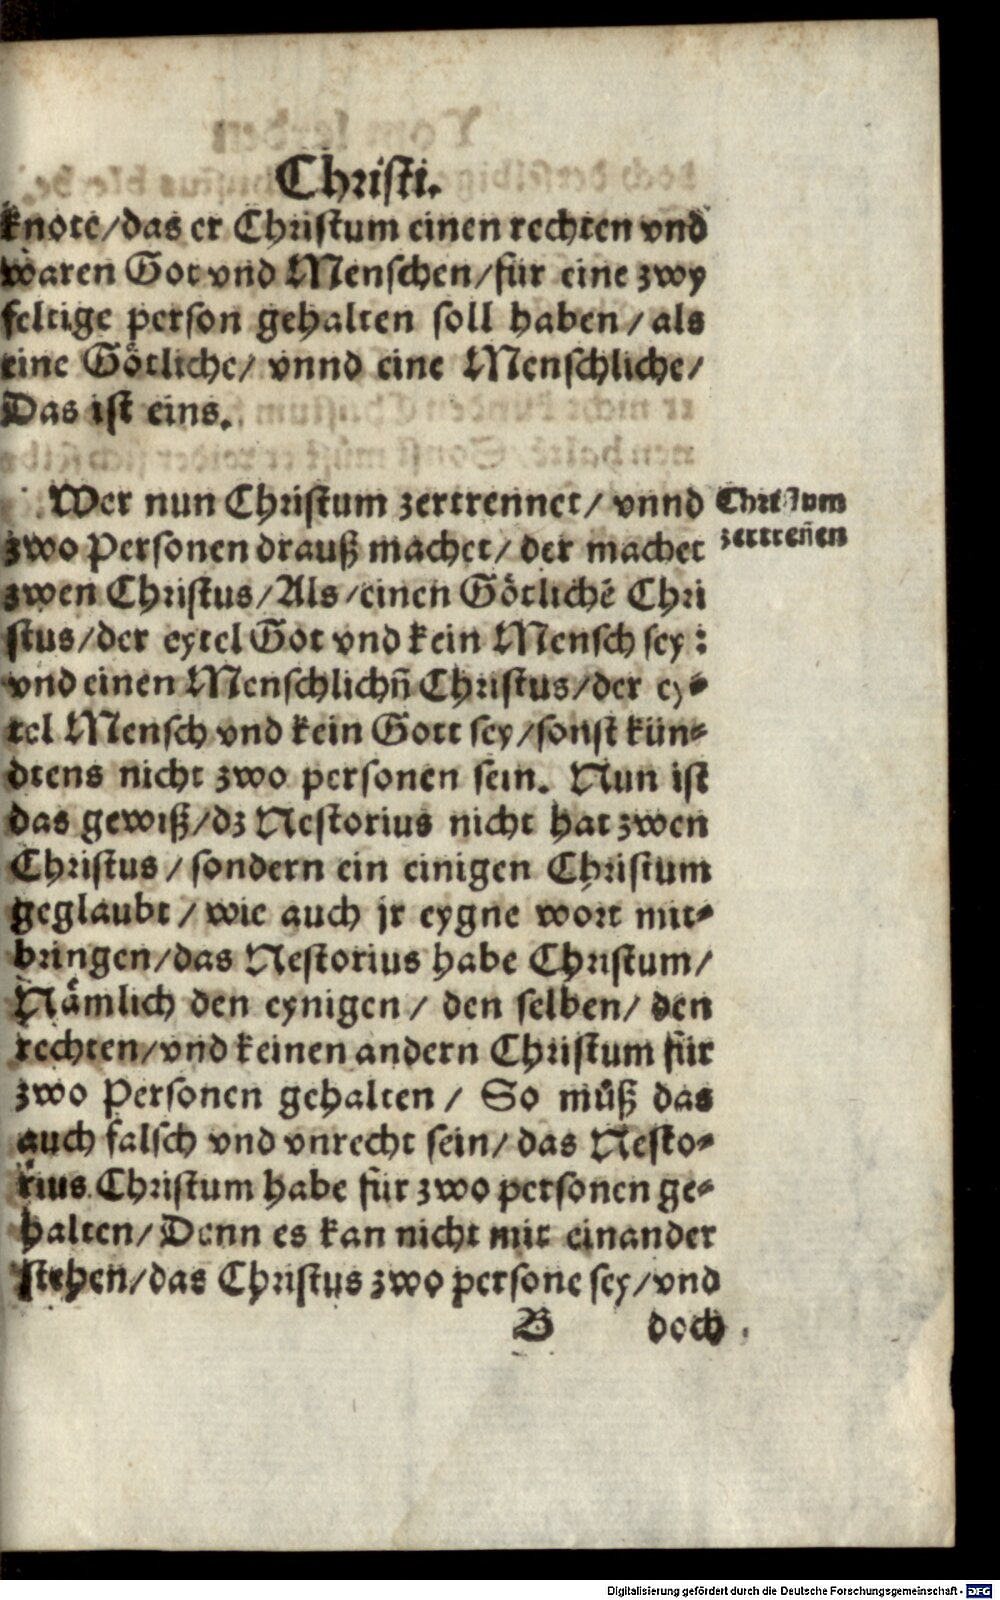 Christi.
knote/das er Christum einen rechten vnd
waren Got vnd Menschen/für eine zwy
feltige person gehalten soll haben/als
eine Götliche/ vnnd eine Menschliche/
Das ist eins.
Wer nun Christum zertrennet/ vnnd
Christum
zwo Personen drauß machet/ der machet
zertreñen
zwen Christus/Als/einen Götlichē Chri
stus/der eytel Got vnd kein Mensch sey:
vnd einen Menschlichn̄ Christus/der ey⸗
tel Mensch vnd kein Gott sey/sonst kün⸗
dtens nicht zwo personen sein. Nun ist
das gewiß/dz Nestorius nicht hat zwen
Christus/sondern ein einigen Christum
geglaubt/wie auch jr eygne wort mit⸗
bringen/das Nestorius habe Christum/
Nämlich den eynigen/ den selben/ den
rechten/vnd keinen andern Christum für
zwo Personen gehalten/ So můß das
auch falsch vnd vnrecht sein/das Nesto⸗
rius Christum habe für zwo personen ge⸗
halten/Denn es kan nicht mit einander
stehen/das Christus zwo persone sey/vnd
B doch
Digitalisierung gefördert durch die Deutsche Forschungsgemeinschaft - DFG